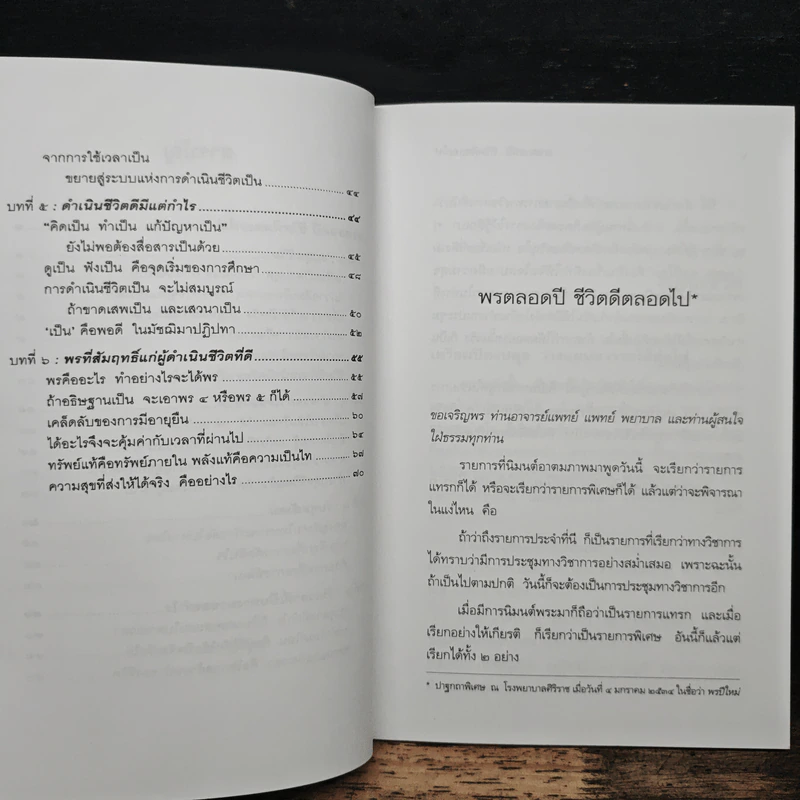 จากการใช้เวลาเป็น
ขยายสู่ระบบแห่งการดำเนินชีวิตเป็น ๔๔
บทที่ ๕ : ดำเนินชีวิตดีมีแต่กำไร ๔๔
“คิดเป็น ทำเป็น แก้ปัญหาเป็น”
ยังไม่พอต้องสื่อสารเป็นด้วย ๔๕
ดูเป็น ฟังเป็น คือจุดเริ่มของการศึกษา ๔๘
การดำเนินชีวิตเป็น จะไม่สมบูรณ์
ถ้าขาดเสพเป็น และเสวนาเป็น ๕๐
‘เป็น’ คือพอดี ในมัชฌิมาปฏิปทา ๕๒
บทที่ ๖ : พรที่สัมฤทธิ์แก่ผู้ดำเนินชีวิตที่ดี ๕๕
พรคืออะไร ทำอย่างไรจะได้พร ๕๕
ถ้าอธิษฐานเป็น จะเอาพร ๔ หรือพร ๕ ก็ได้ ๕๗
เคล็ดลับของการมีอายุยืน ๖๐
ได้อะไรจึงจะคุ้มค่ากับเวลาที่ผ่านไป ๖๔
ทรัพย์แท้คือทรัพย์ภายใน พลังแท้คือความเป็นไท ๖๗
ความสุขที่ส่งให้ได้จริง คืออย่างไร ๗๐
พรตลอดปี ชีวิตดีตลอดไป*
ขอเจริญพร ท่านอาจารย์แพทย์ แพทย์ พยาบาล และท่านผู้สนใจ
ใฝ่ธรรมทุกท่าน
รายการที่นิมนต์อาตมภาพมาพูดวันนี้ จะเรียกว่ารายการ
แทรกก็ได้ หรือจะเรียกว่ารายการพิเศษก็ได้ แล้วแต่ว่าจะพิจารณา
ในแง่ไหน คือ
ถ้าว่าถึงรายการประจำที่นี่ ก็เป็นรายการที่เรียกว่าทางวิชาการ
ได้ทราบว่ามีการประชุมทางวิชาการอย่างสม่ำเสมอ เพราะฉะนั้น
ถ้าเป็นไปตามปกติ วันนี้ก็จะต้องเป็นการประชุมทางวิชาการอีก
เมื่อมีการนิมนต์พระมาก็ถือว่าเป็นรายการแทรก และเมื่อ
เรียกอย่างให้เกียรติ ก็เรียกว่าเป็นรายการพิเศษ อันนี้ก็แล้วแต่
เรียกได้ทั้ง ๒ อย่าง
* ปาฐกถาพิเศษ ณ โรงพยาบาลศิริราช เมื่อวันที่ ๔ มกราคม ๒๕๓๔ ในชื่อว่า พรปีใหม่